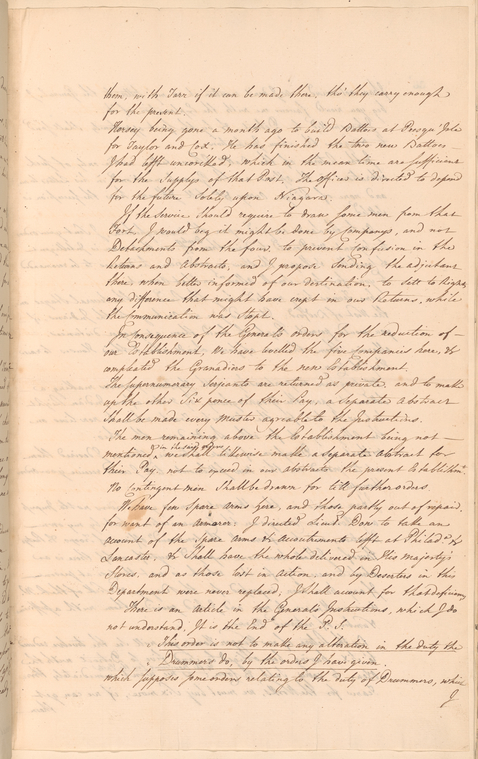 them, with Tarr if it can be made there. tho' they carry enough
for the present.
Horsey being gone a month ago to build Battoes at Presqu' Isle
for Taylor and Cox. He has finished the two new Battoes
I had left uncorked, which in the mean time are sufficient
for the Supplys of that Post. The officer is directed to depend
for the future Solely upon Niagara.
If the Service Should require to draw Some men from that
Fort I would beg it might be done by Companys, and not
Detachments from the four, to prevent Confusion in the
Returns and Abstracts, and I propose Sending the adjutant
there when better informed of our destination, to Sett to Rights
any difference that might have crept in our Returns, while
the Communication was Stopt.
In Consequence of the Generals orders for the reduction of
our Establishment, We have levelled the five Companies here, &
compleated the Granadiers to the new Establishment.
The Supernumerary Serjeants are returned as private and to make
up the other Six pence of their Pay, a Separate Abstract
Shall be made every Muster agreable to the Instructions.
The men remaining above the Establishment being not
mentioned, in the said orders we shall likewise make a Separate Abstract for
their Pay. not to exceed in our abstracts the present Establishmt.
No Contingent men Shall be drawn for till further orders.
We have few Spare Arms here, and those partly out of repair,
for want of an Armorer: I directed Lieut. Dow to take an
account of the Spare arms & Accoutrements left at Philada. &
Lancaster, & Shall have the whole delivered in His Majesty's
Stores. and as those lost in Action, and by Deserters in this
Department were never replaced, I Shall account for that deficiency
There is an Article in the Generals Instructions, which I do
not understand, It is the End of the P. S.
This order is not to make any alteration in the duty the
Drummers do, by the orders I have given.
which supposes some orders relating to the duty of Drummers, which
I